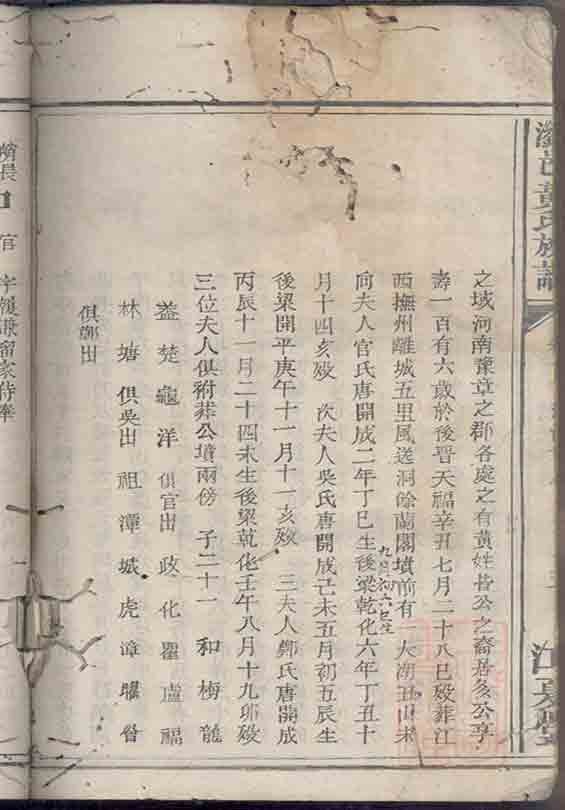 黃氏族譜
江夏堂
之域河南豫章之郡各處之有黃姓皆公之裔居多公享
壽一百有六歲於後晋天福辛丑七月二十八巳歿葬江
西撫州離城五里風送洞餘蘭閣墳前有一大湖丑山未
向夫人官氏唐開成二年丁巳九月初六巳生生後梁乾化六年丁丑十
月十四亥歿 次夫人吳氏唐開成己未五月初五辰生
後梁開平庚午十一月十一亥歿 三夫人鄭氏唐開成
丙辰十一月二十四未生後梁乾化壬午八月十九卯歿
三位夫人俱祔葬公墳兩傍 子二十一 和 梅 龍
蓋 楚 龜 洋 俱官出 政 化 衢 盧 福
林 塘 俱吳出 祖 潭 城 虎 漳 曜
俱鄭出
官 字 留家侍奉